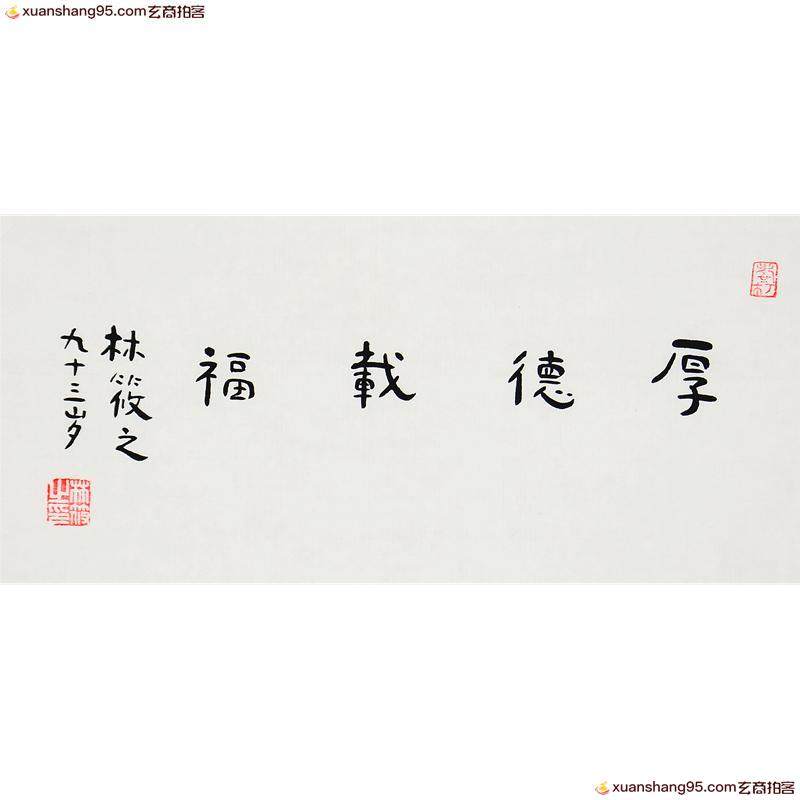 xuanshang95.com玄商拍客
厚德載福
林筱之
九十三岁
林筱之印
xuanshang95.com玄商拍客